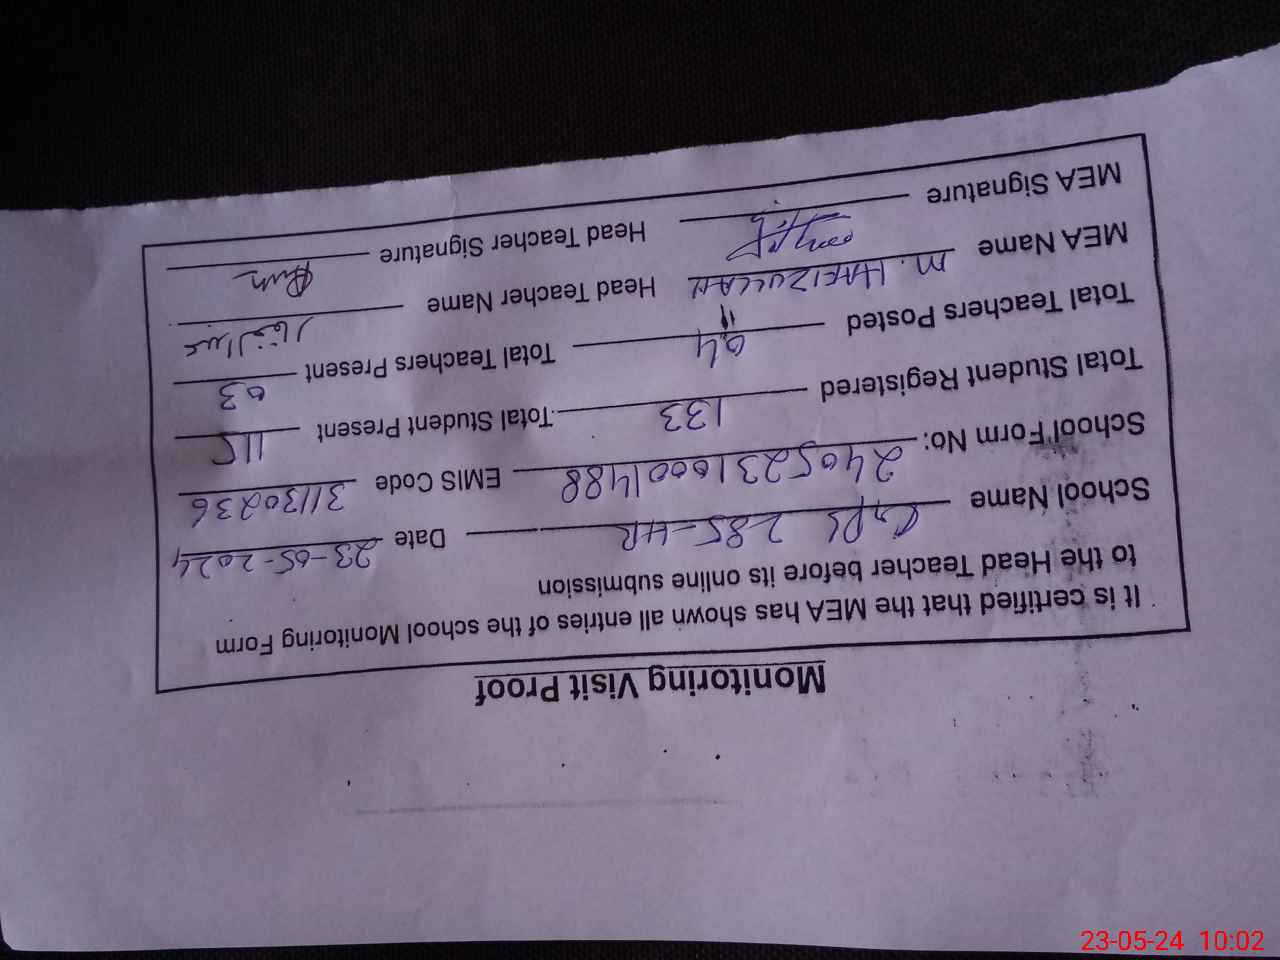 Monitoring Visit Proof
It is certified that the MEA has shown all entries of the school Monitoring Form
to the Head Teacher before its online submission
School Name GPS 285-HR Date 23-05-2024
School Form No: 24052310001488 EMIS Code 31130236
Total Student Registered 133 Total Student Present 115
Total Teachers Posted 04 Total Teachers Present 03
MEA Name M. HAFIZULLAH Head Teacher Name
MEA Signature Head Teacher Signature
23-05-24 10:02